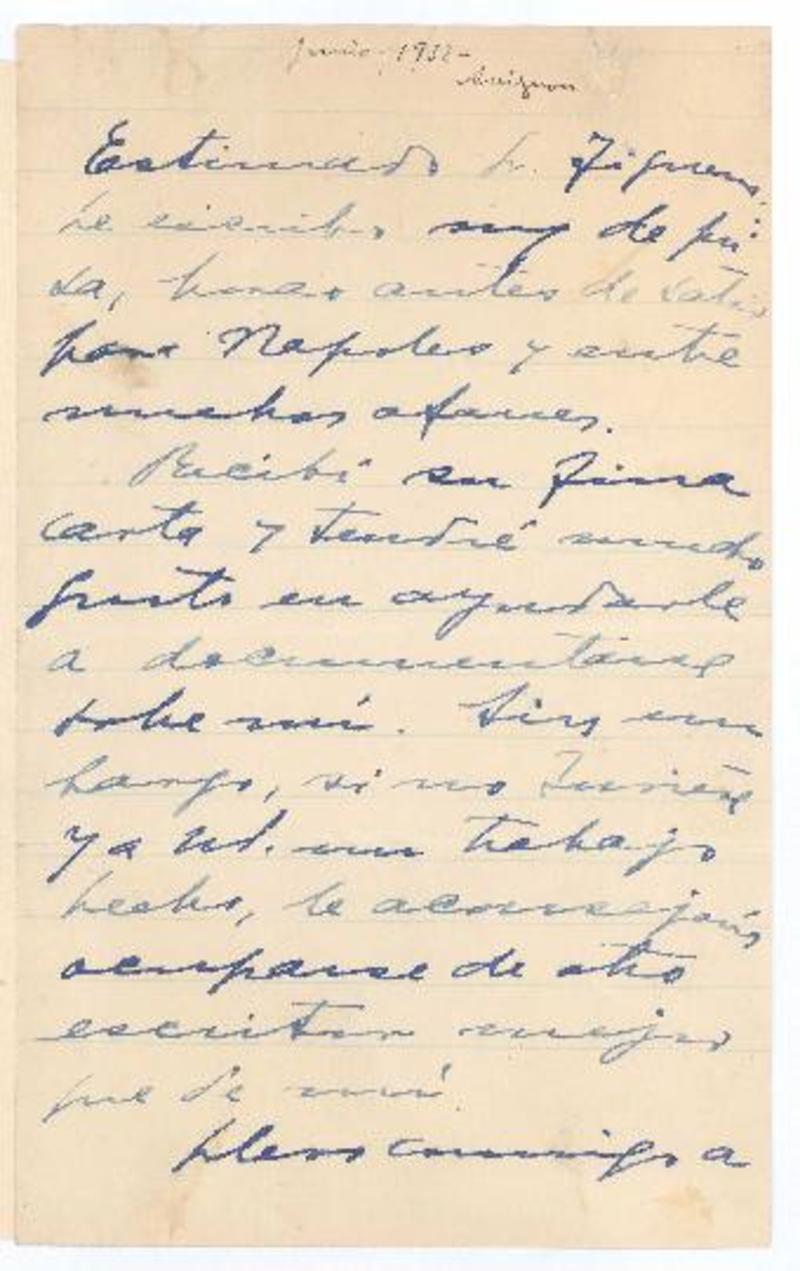 Junio, 1932 -
Avignon
Estimado Sr. Figueroa,
Le escribo muy de pri
sa, horas antes de salir
para Napoles y entre
muchos afanes.
Recibí su fina
carta y tendré mucho
gusto en ayudarle
a documentarse
sobre mí. Sin em
bargo, si no tuviese
ya Ud. un trabajo
hecho, le aconsejaría
ocuparse de otro
escritor mejor
que de mí.
Llevo conmigo a